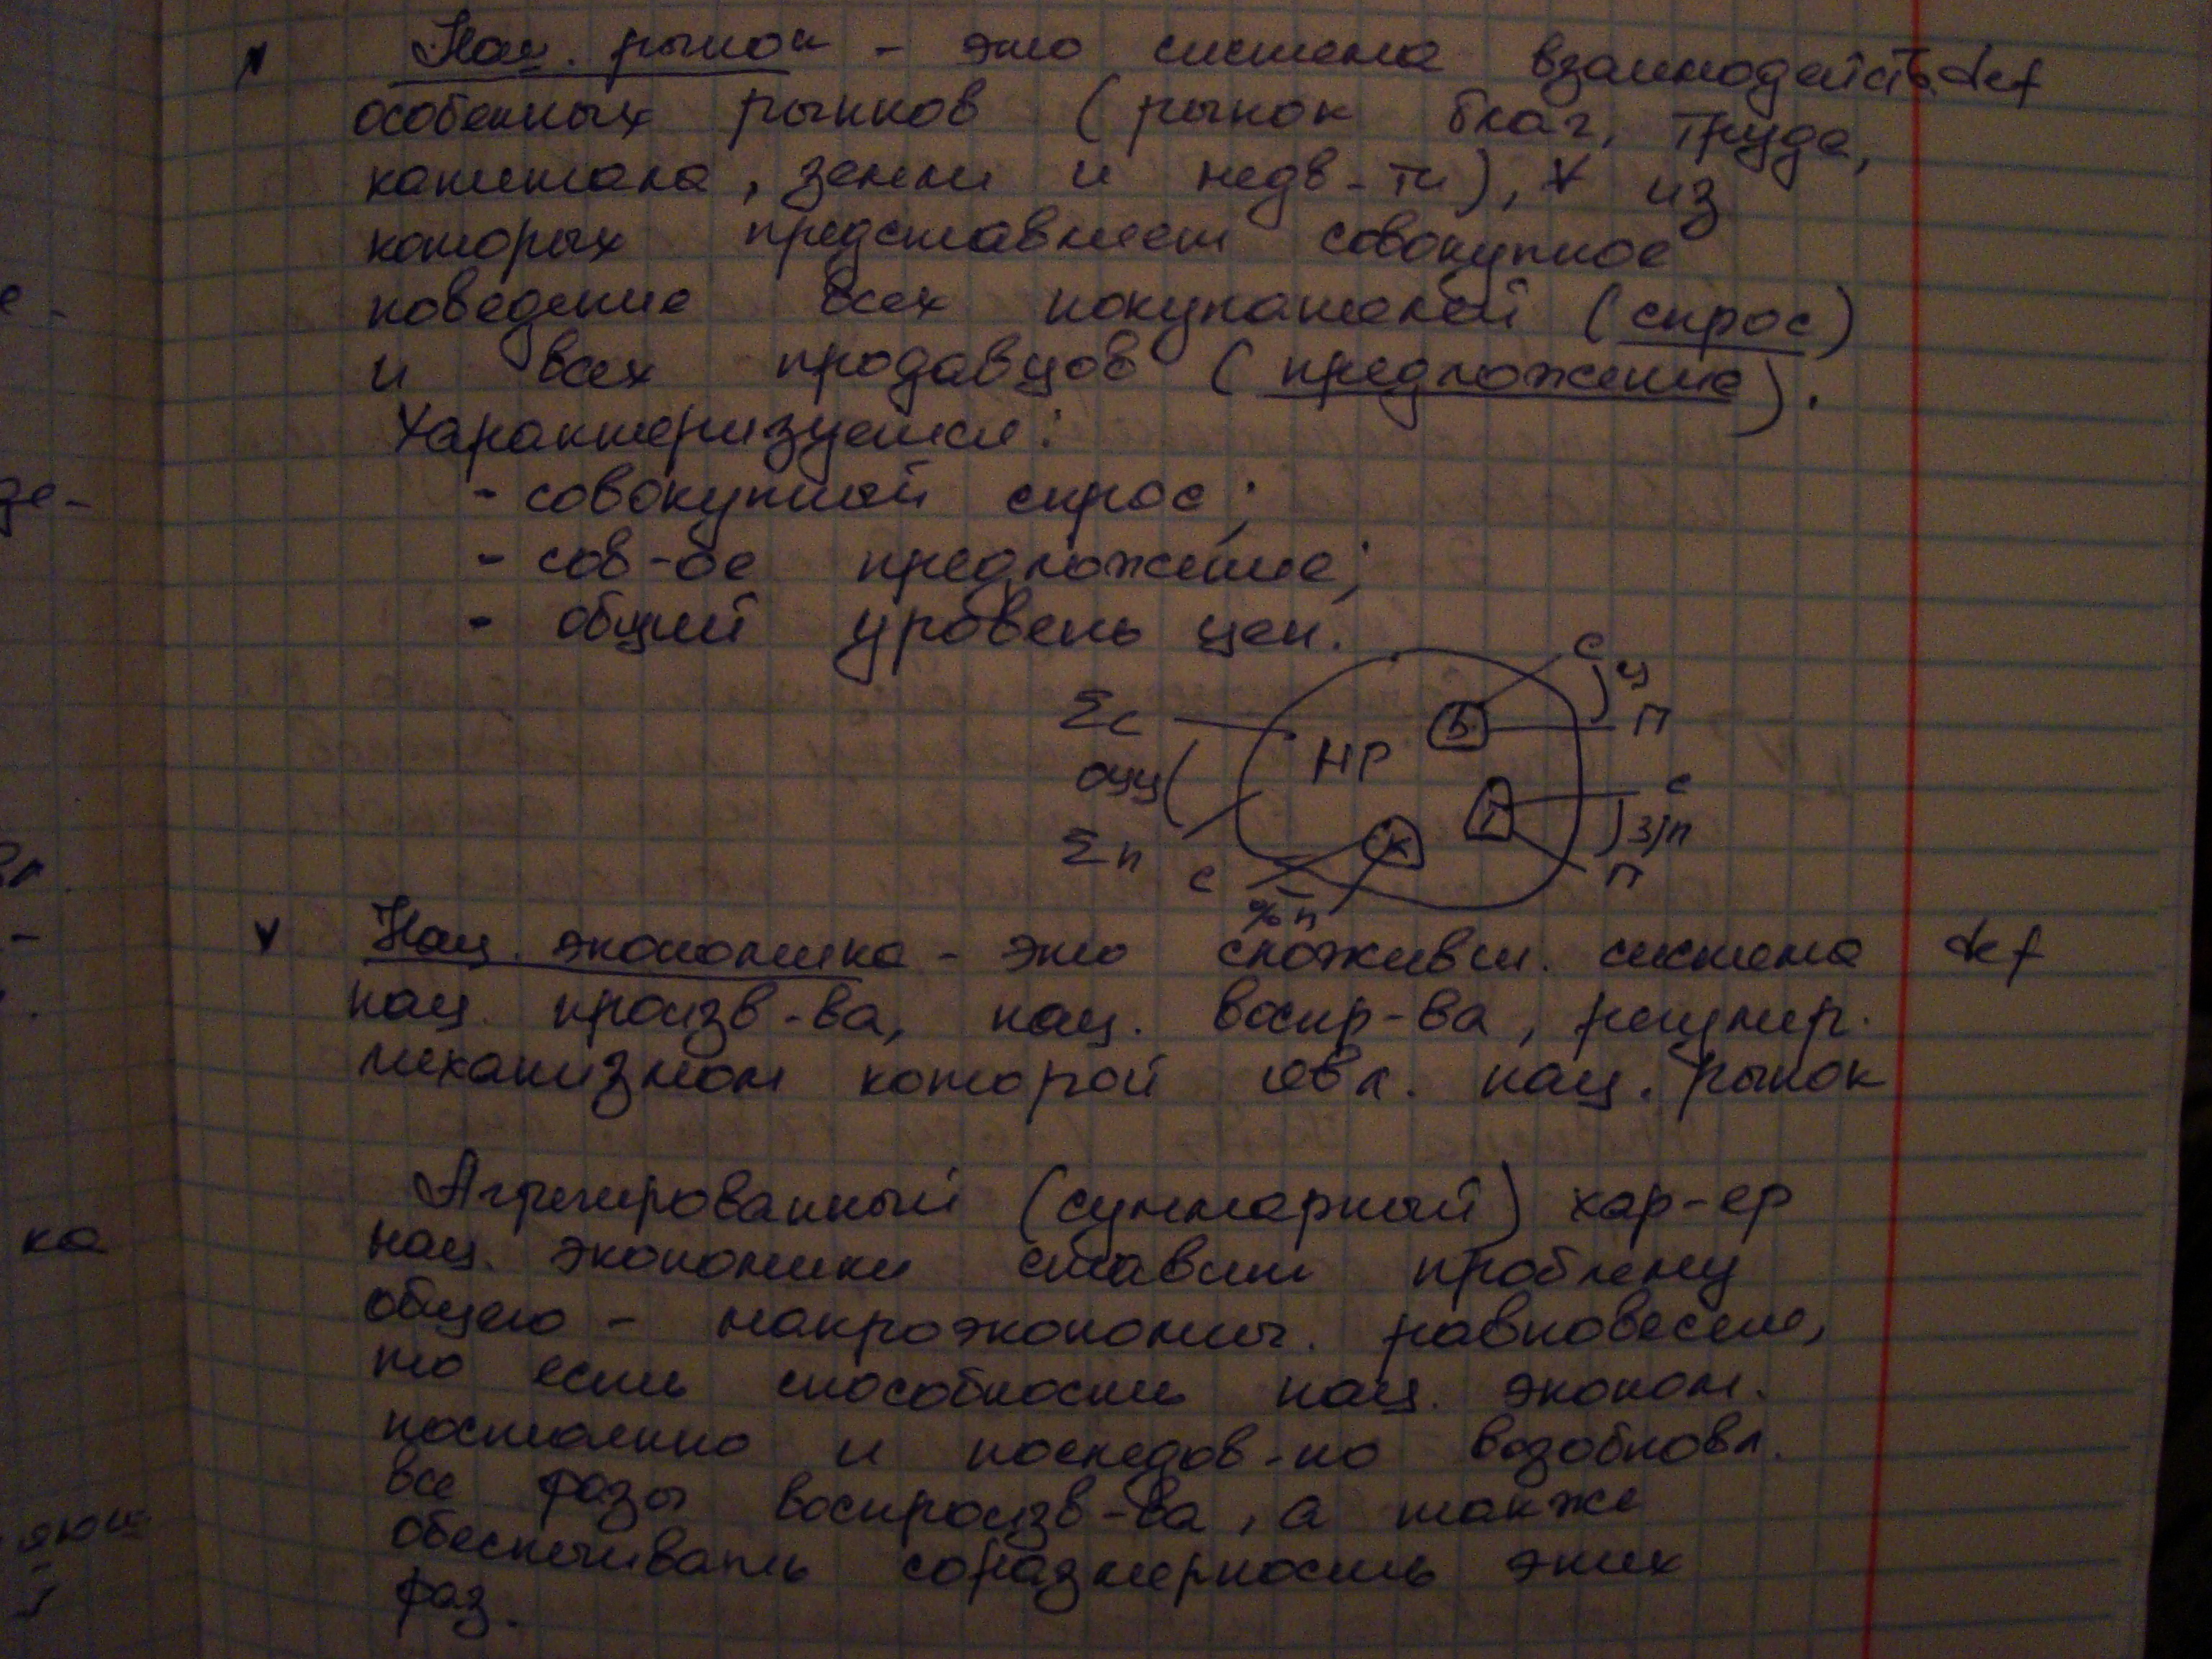 Нац. рынок - это система взаимодейств. def
особенных рынков (рынок благ, труда,
капитала, земли и недв-ти), ∀ из
которых представляет совокупное
поведение всех покупателей (спрос)
и всех продавцов (предложение).
Характеризуется:
- совокупный спрос;
- сов-ое предложение;
- общий уровень цен.
С
Ц
Σс
Б
П
НР
ОУЦ
С
Т
З/П
К
Σп
С
П
% П
Нац. экономика - это сложивш. система def
нац. произв-ва, нац. воспр-ва, регулир.
механизмом которой явл. нац. рынок
Агрегированный (суммарный) хар-ер
нац. экономики ставит проблему
общего - макроэкономич. равновесия,
то есть способность нац. эконом.
постоянно и последов-но возобновл.
все фазы воспроизв-ва, а также
обеспечивать соразмерность этих
фаз.
ка